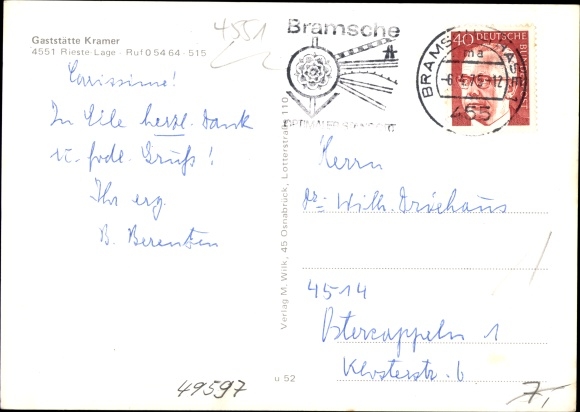 4551
Gaststätte Kramer
4551 Rieste-Lage - Ruf 0 54 64 - 515
Bramsche
40 DEUTSCHE BUNDESPOST
BRAMSCHE
ma
-6.4.75-12
455
Carissime!
In Eile herzl. Dank
u. frdl. Gruß!
Ihr erg.
B. Berentzen
Verlag M. Wilk, 45 Osnabrück, Lotterstraße 110
Herrn
Dr. Wilh. Dröehaus
4514
Ostercappeln 1
Klosterstr. 6
49597
u 52
7,